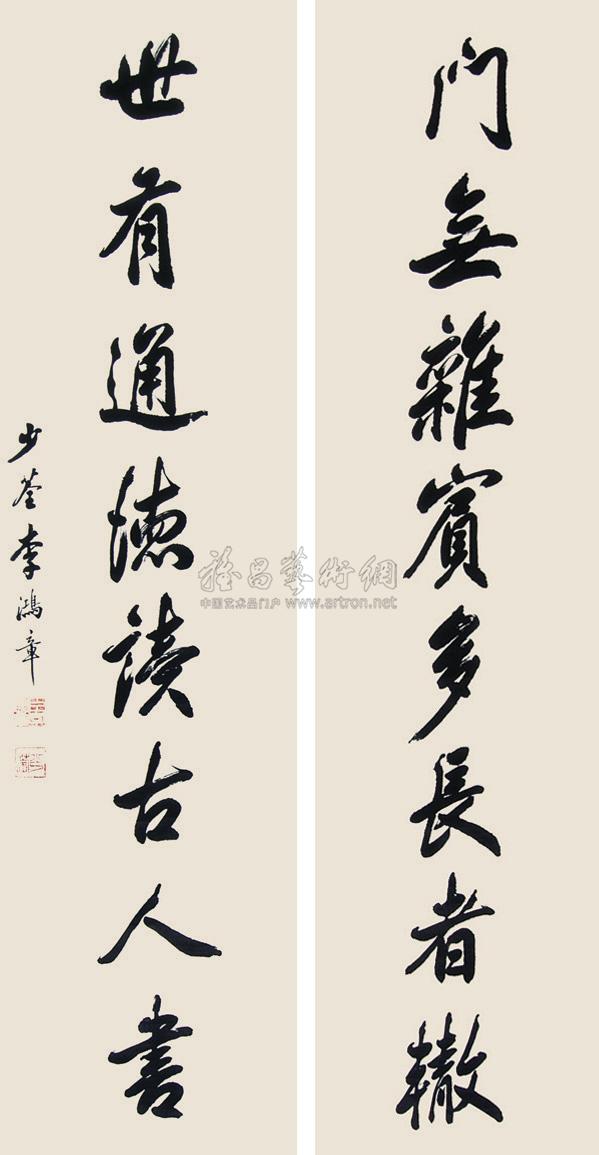 門無雜賓多長者轍
世有通德讀古人書
少荃李鴻章
雅昌藝術網
中国艺术品门户 www.artron.net